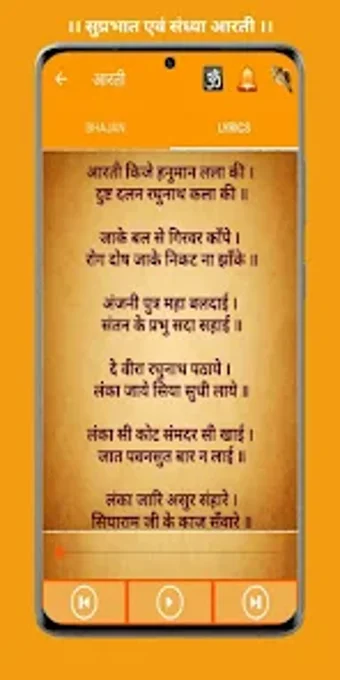 ।। सुप्रभात एवं संध्या आरती ।।
आरती
ॐ
BHAJAN
LYRICS
आरती किजे हनुमान लला की ।
दुष्ट दलन रघुनाथ कला की ॥
जाके बल से गिरवर काँपे ।
रोग दोष जाके निकट ना झाँके ॥
अंजनी पुत्र महा बलदाई ।
संतन के प्रभु सदा सहाई ॥
दे वीरा रघुनाथ पठाये ।
लंका जाये सिया सुधी लाये ॥
लंका सी कोट संमदर सी खाई ।
जात पवनसुत बार न लाई ॥
लंका जारि असुर संहारे ।
सियाराम जी के काज सँवारे ॥